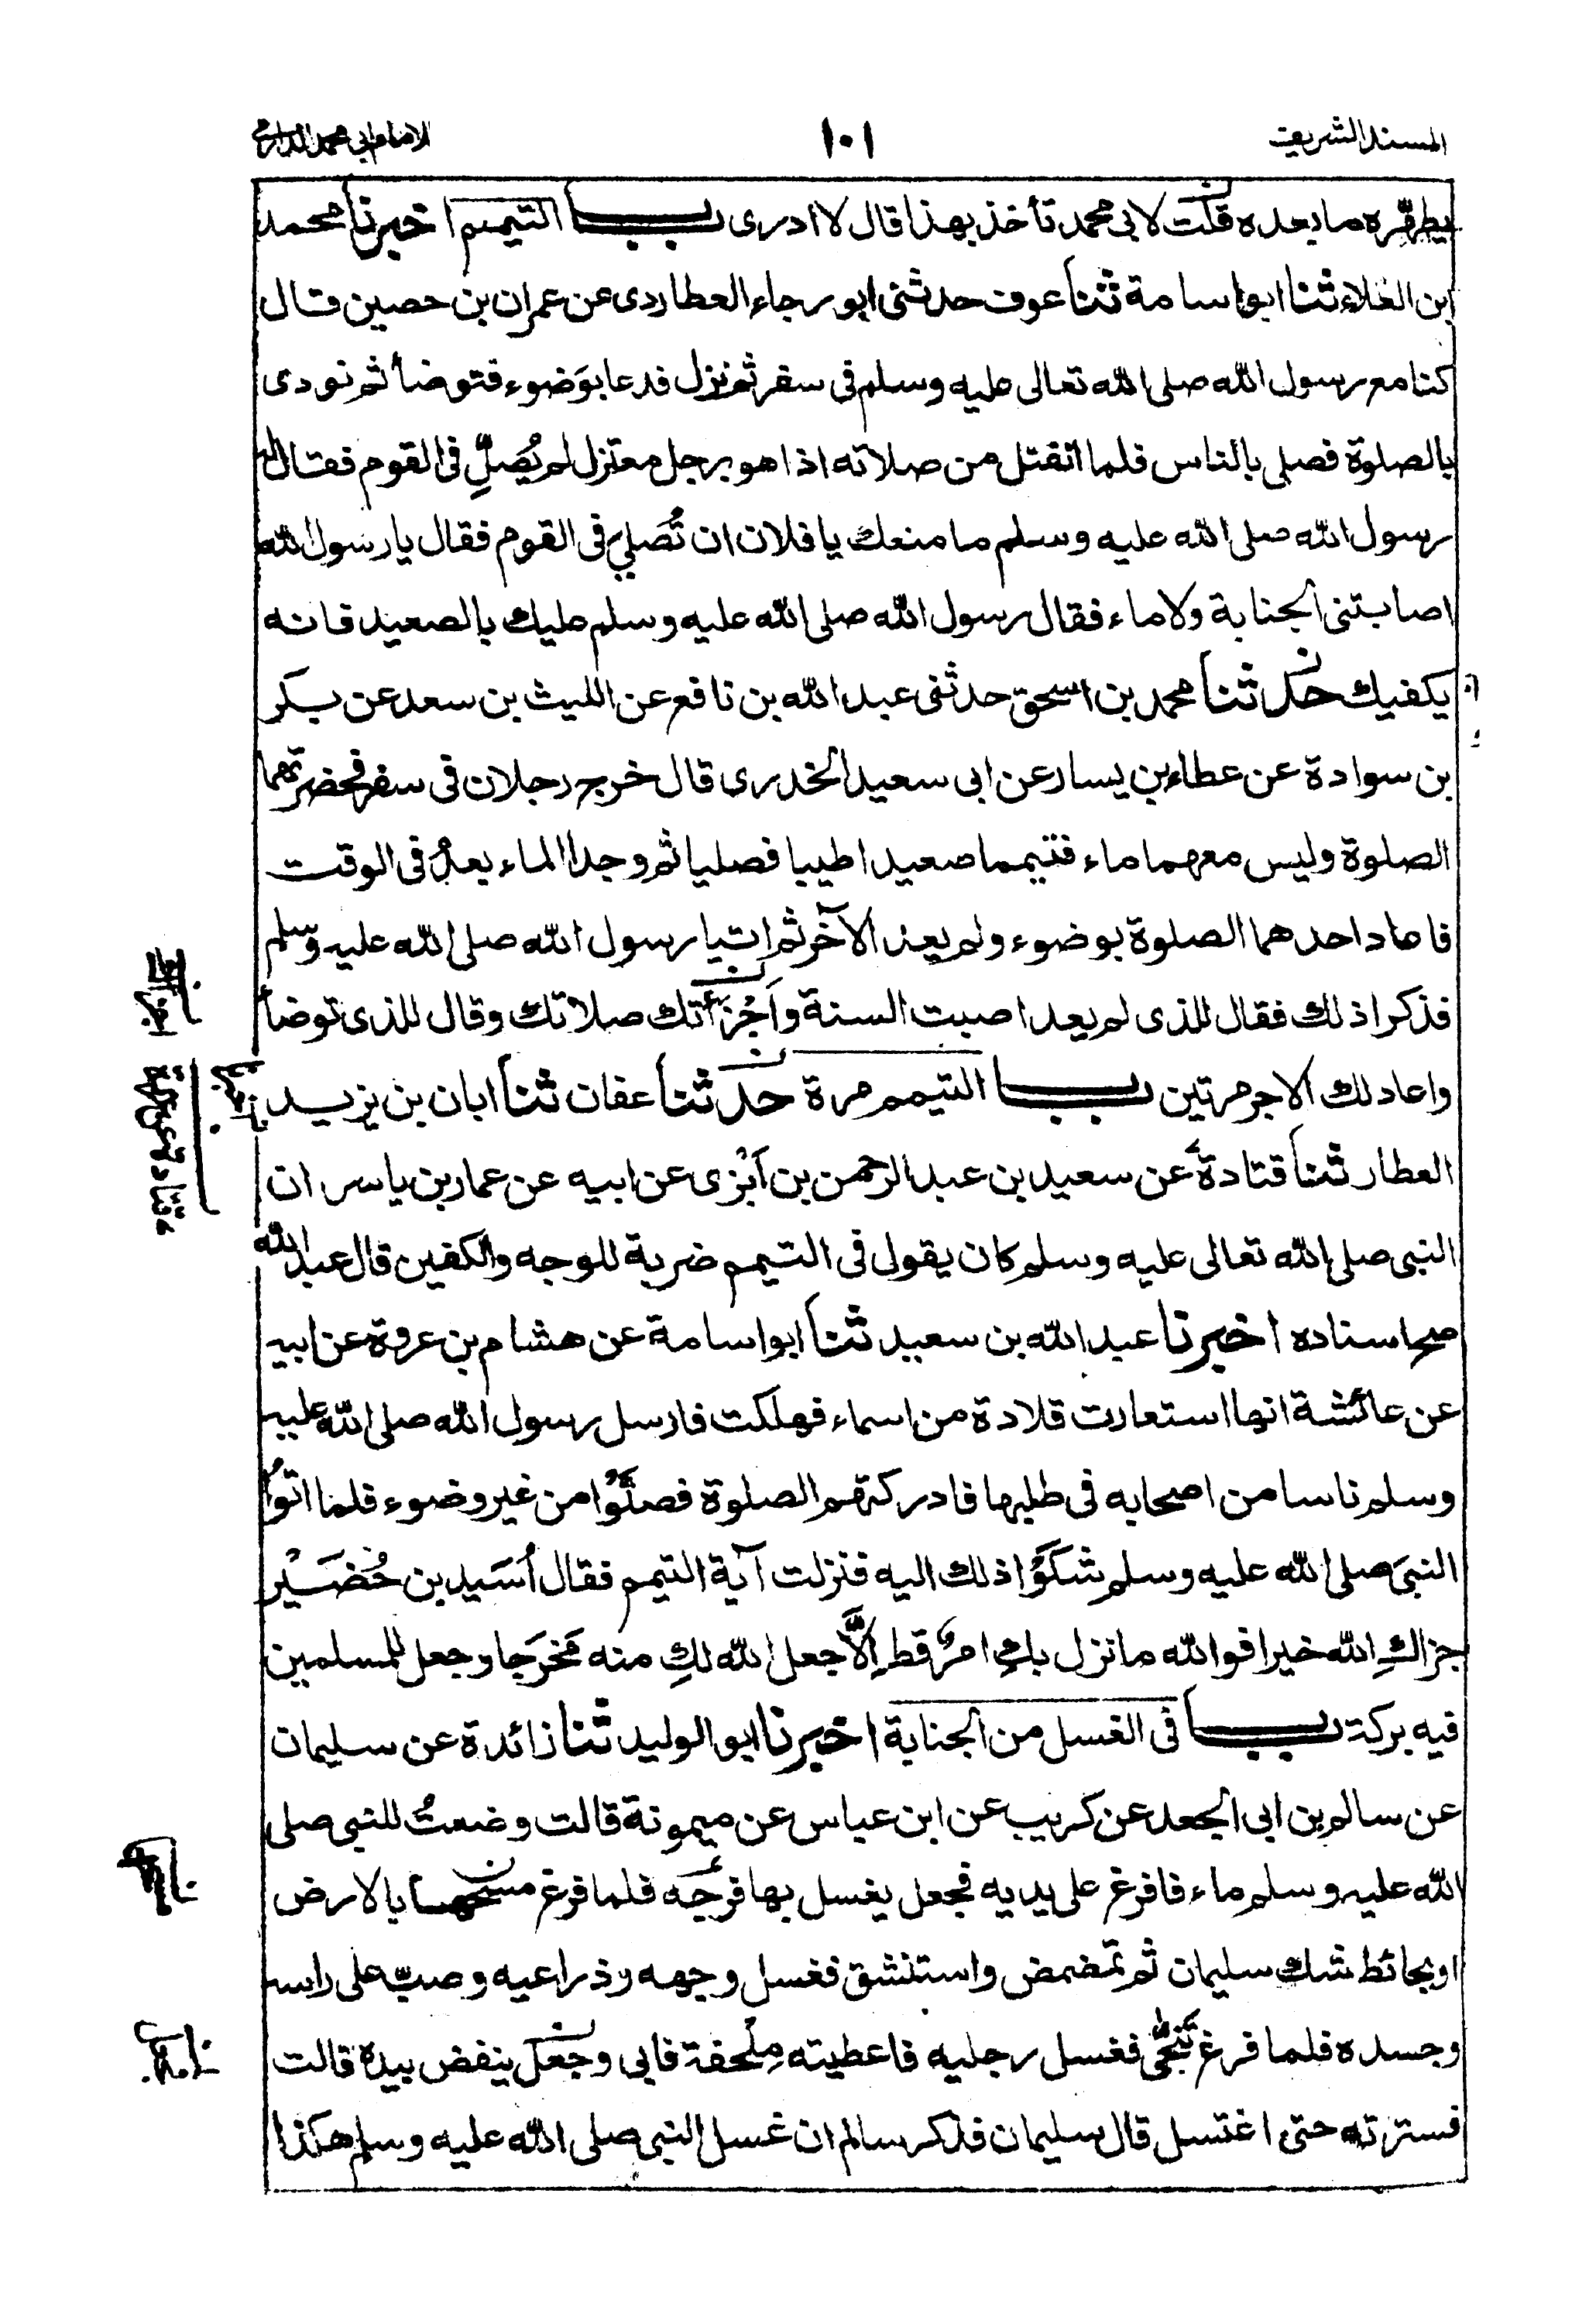 المسند الشريف
١٠١
للامام ابي محمد الدارمي
يطهره ما بعده قلت لابي محمد تأخذ بهذا قال لا ادرى باب التيمم اخبرنا محمد
ابن العلاء ثنا ابو اسامة ثنا عوف حدثنى ابو رجاء العطاردى عن عمران بن حصين قال
كنا مع رسول الله صلى الله تعالى عليه وسلم فى سفر ثم نزل فدعا بوَضوء فتوضأ ثم نودى
بالصلوة فصلى بالناس فلما انفتل من صلاته اذا هو برجل معتزل لم يُصَلِّ فى القوم فقال له
رسول الله صلى الله عليه وسلم ما منعك يا فلان ان تُصَلي فى القوم فقال يا رسول الله
اصابتنى الجنابة ولا ماء فقال رسول الله صلى الله عليه وسلم عليك بالصعيد فانه
يكفيك حدثنا محمد بن اسحق حدثنى عبد الله بن نافع عن الليث بن سعد عن بكر
بن سوادة عن عطاء بن يسار عن ابى سعيد الخدرى قال خرج رجلان فى سفر فحضرتهما
الصلوة وليس معهما ماء فتيمما صعيدا طيبا فصليا ثم وجدا الماء بعدُ فى الوقت
فاعاد احدهما الصلوة بوضوء ولم يعد الآخر ثم اتيا رسول الله صلى الله عليه وسلم
فذكرا ذلك فقال للذى لم يعد اصبت السنة وَاَجْزَأتك صلاتك وقال للذى توضأ
واعاد لك الاجر مرتين باب التيمم مرة حدثنا عفان ثنا ابان بن يزيد
العطار ثنا قتادة عن سعيد بن عبد الرحمن بن اَبْزى عن ابيه عن عمار بن ياسر ان
النبى صلى الله تعالى عليه وسلم كان يقول فى التيمم ضربة للوجه والكفين قال عبد الله
صح اسناده اخبرنا عبد الله بن سعيد ثنا ابو اسامة عن هشام بن عروة عن ابيه
عن عائشة انها استعارت قلادة من اسماء فهلكت فارسل رسول الله صلى الله عليه
وسلم ناسا من اصحابه فى طلبها فادركتهم الصلوة فصلَّوْا من غير وضوء فلما اتوُا
النبىَ صلى الله عليه وسلم شكَوْا ذلك اليه فنزلت آية التيمم فقال اُسَيد بن حُضَيْر
جزاكِ الله خيرا فوالله ما نزل بكِ امرٌ قط اِلَّا جعل الله لكِ منه مَخْرَجا وجعل للمسلمين
فيه بركة باب فى الغسل من الجنابة اخبرنا ابو الوليد ثنا زائدة عن سليمان
عن سالم بن ابى الجعد عن كريب عن ابن عباس عن ميمونة قالت وضعتُ للنبى صلى
الله عليه وسلم ماء فافرغ على يديه فجعل يغسل بها فرجَه فلما فرغ مسحها بالارض
او بحائط شك سليمان ثم تمضمض واستنشق فغسل وجهه وذراعيه وصبّ على راسه
وجسده فلما فرغ تَنَحّى فغسل رجليه فاعطيته مِلْحفة فابى وجعل ينفض بيده قالت
فسترته حتى اغتسل قال سليمان فذكر سالم ان غسل النبى صلى الله عليه وسلم هكذا